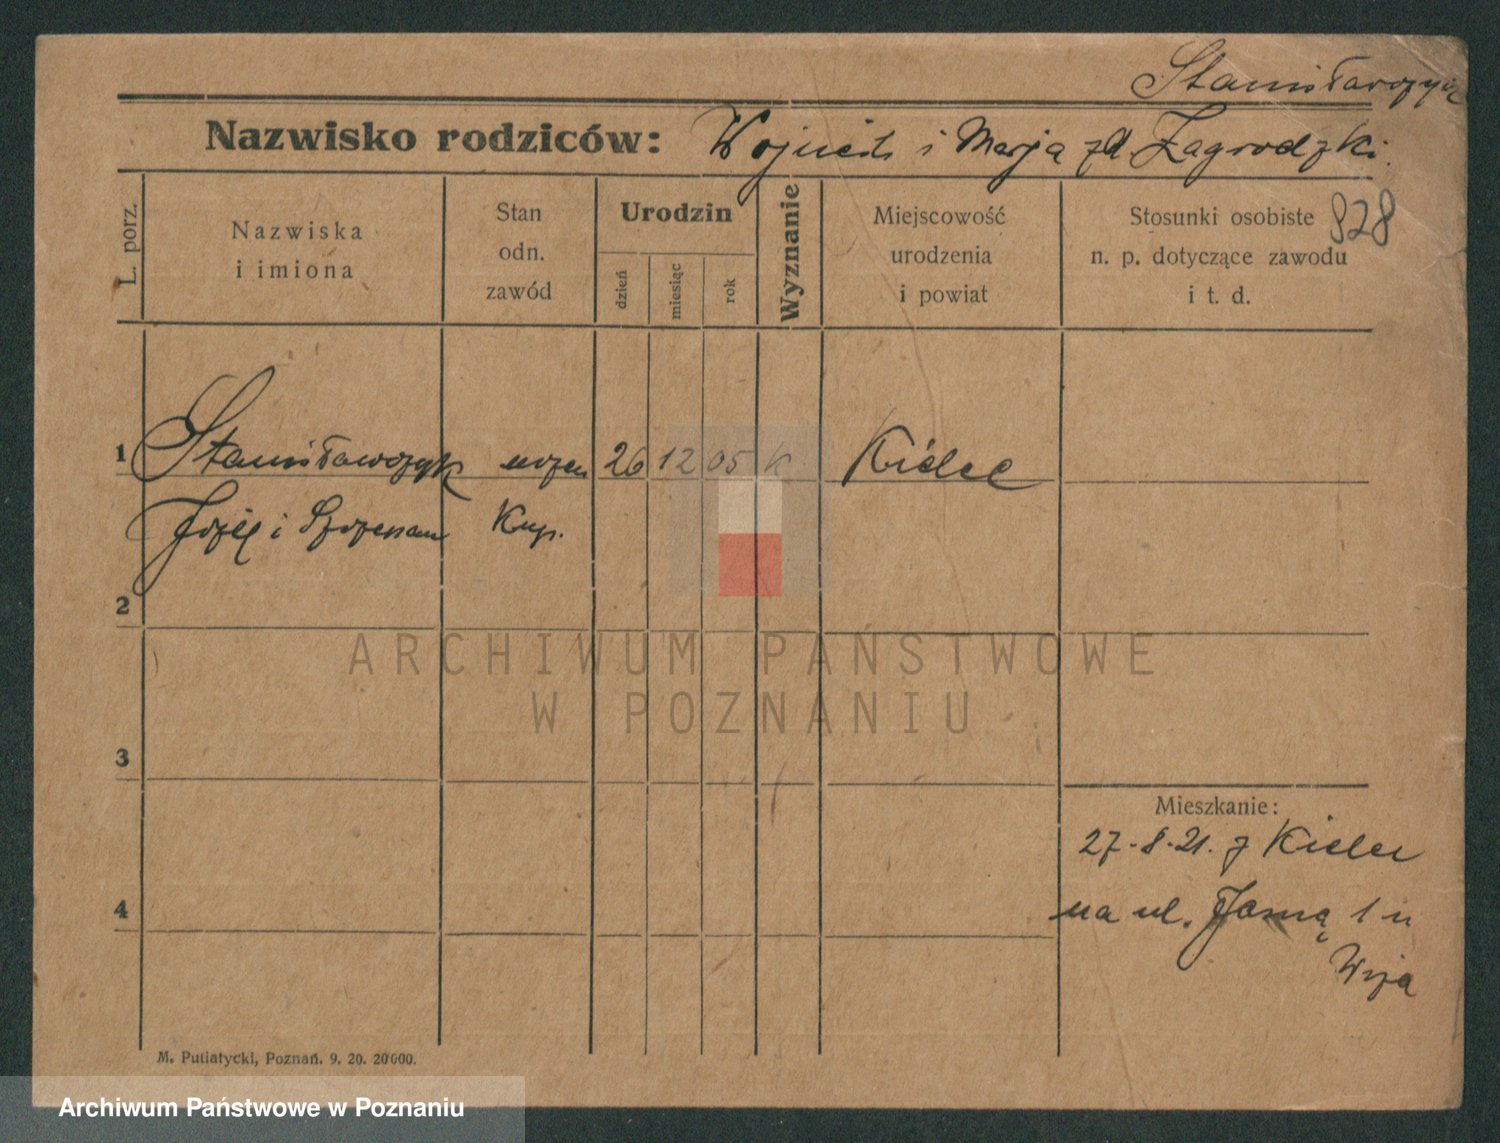 Stanisławczyk
Nazwisko rodziców: Wojciech i Marja zd Zagrodzki
928
L. porz.
Nazwiska
i imiona
Stan
odn.
zawód
Urodzin
dzień
miesiąc
rok
Wyznanie
Miejscowość
urodzenia
i powiat
Stosunki osobiste
n. p. dotyczące zawodu
i t. d.
1 Stanisławczyk uczeń 26 12 05 k Kielce
Józef i Szczepan Kup.
2
3
4
Mieszkanie:
27.8.21. z Kielc
na ul. Jasną 1 u
Wuja
M. Putiatycki, Poznań. 9. 20. 20000.
ARCHIWUM PAŃSTWOWE
W POZNANIU
Archiwum Państwowe w Poznaniu